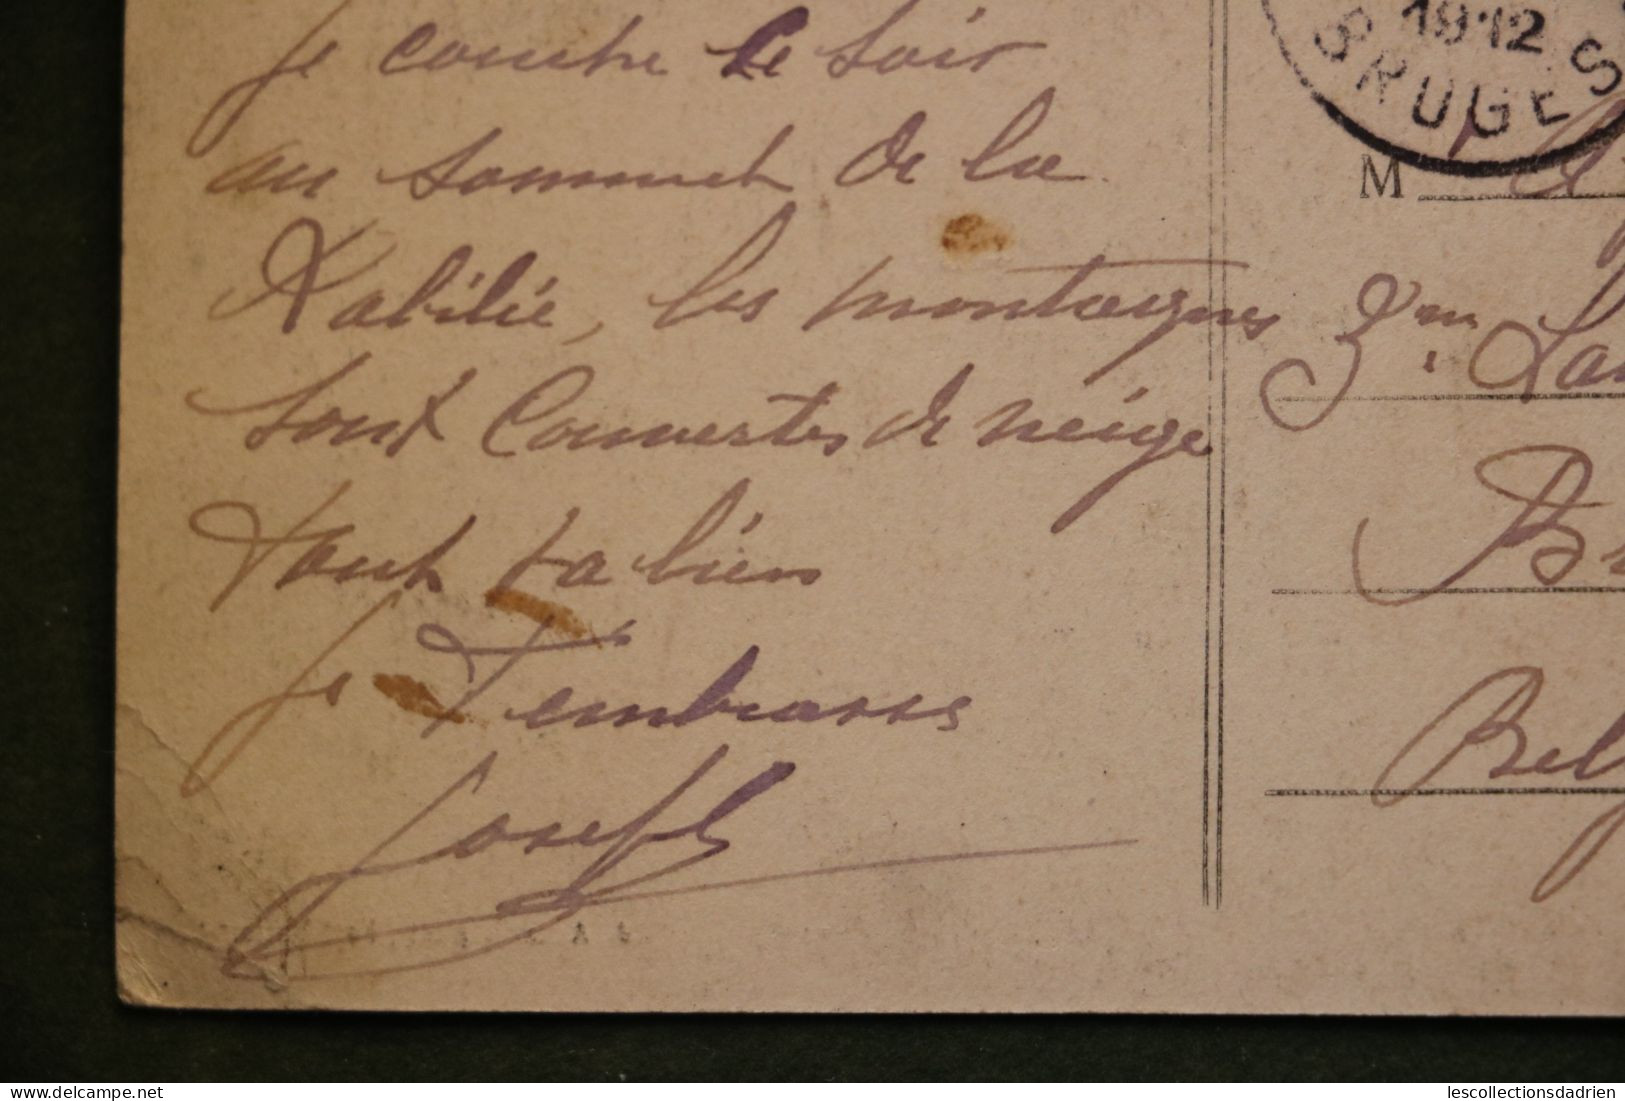 Je couche le soir
au sommet de la
Kabilie, les montagnes
sont couvertes de neige
tout va bien
Je t'embrasse
Joseph
1912
BRUGES
M
Belg
lescollectionsdadrien